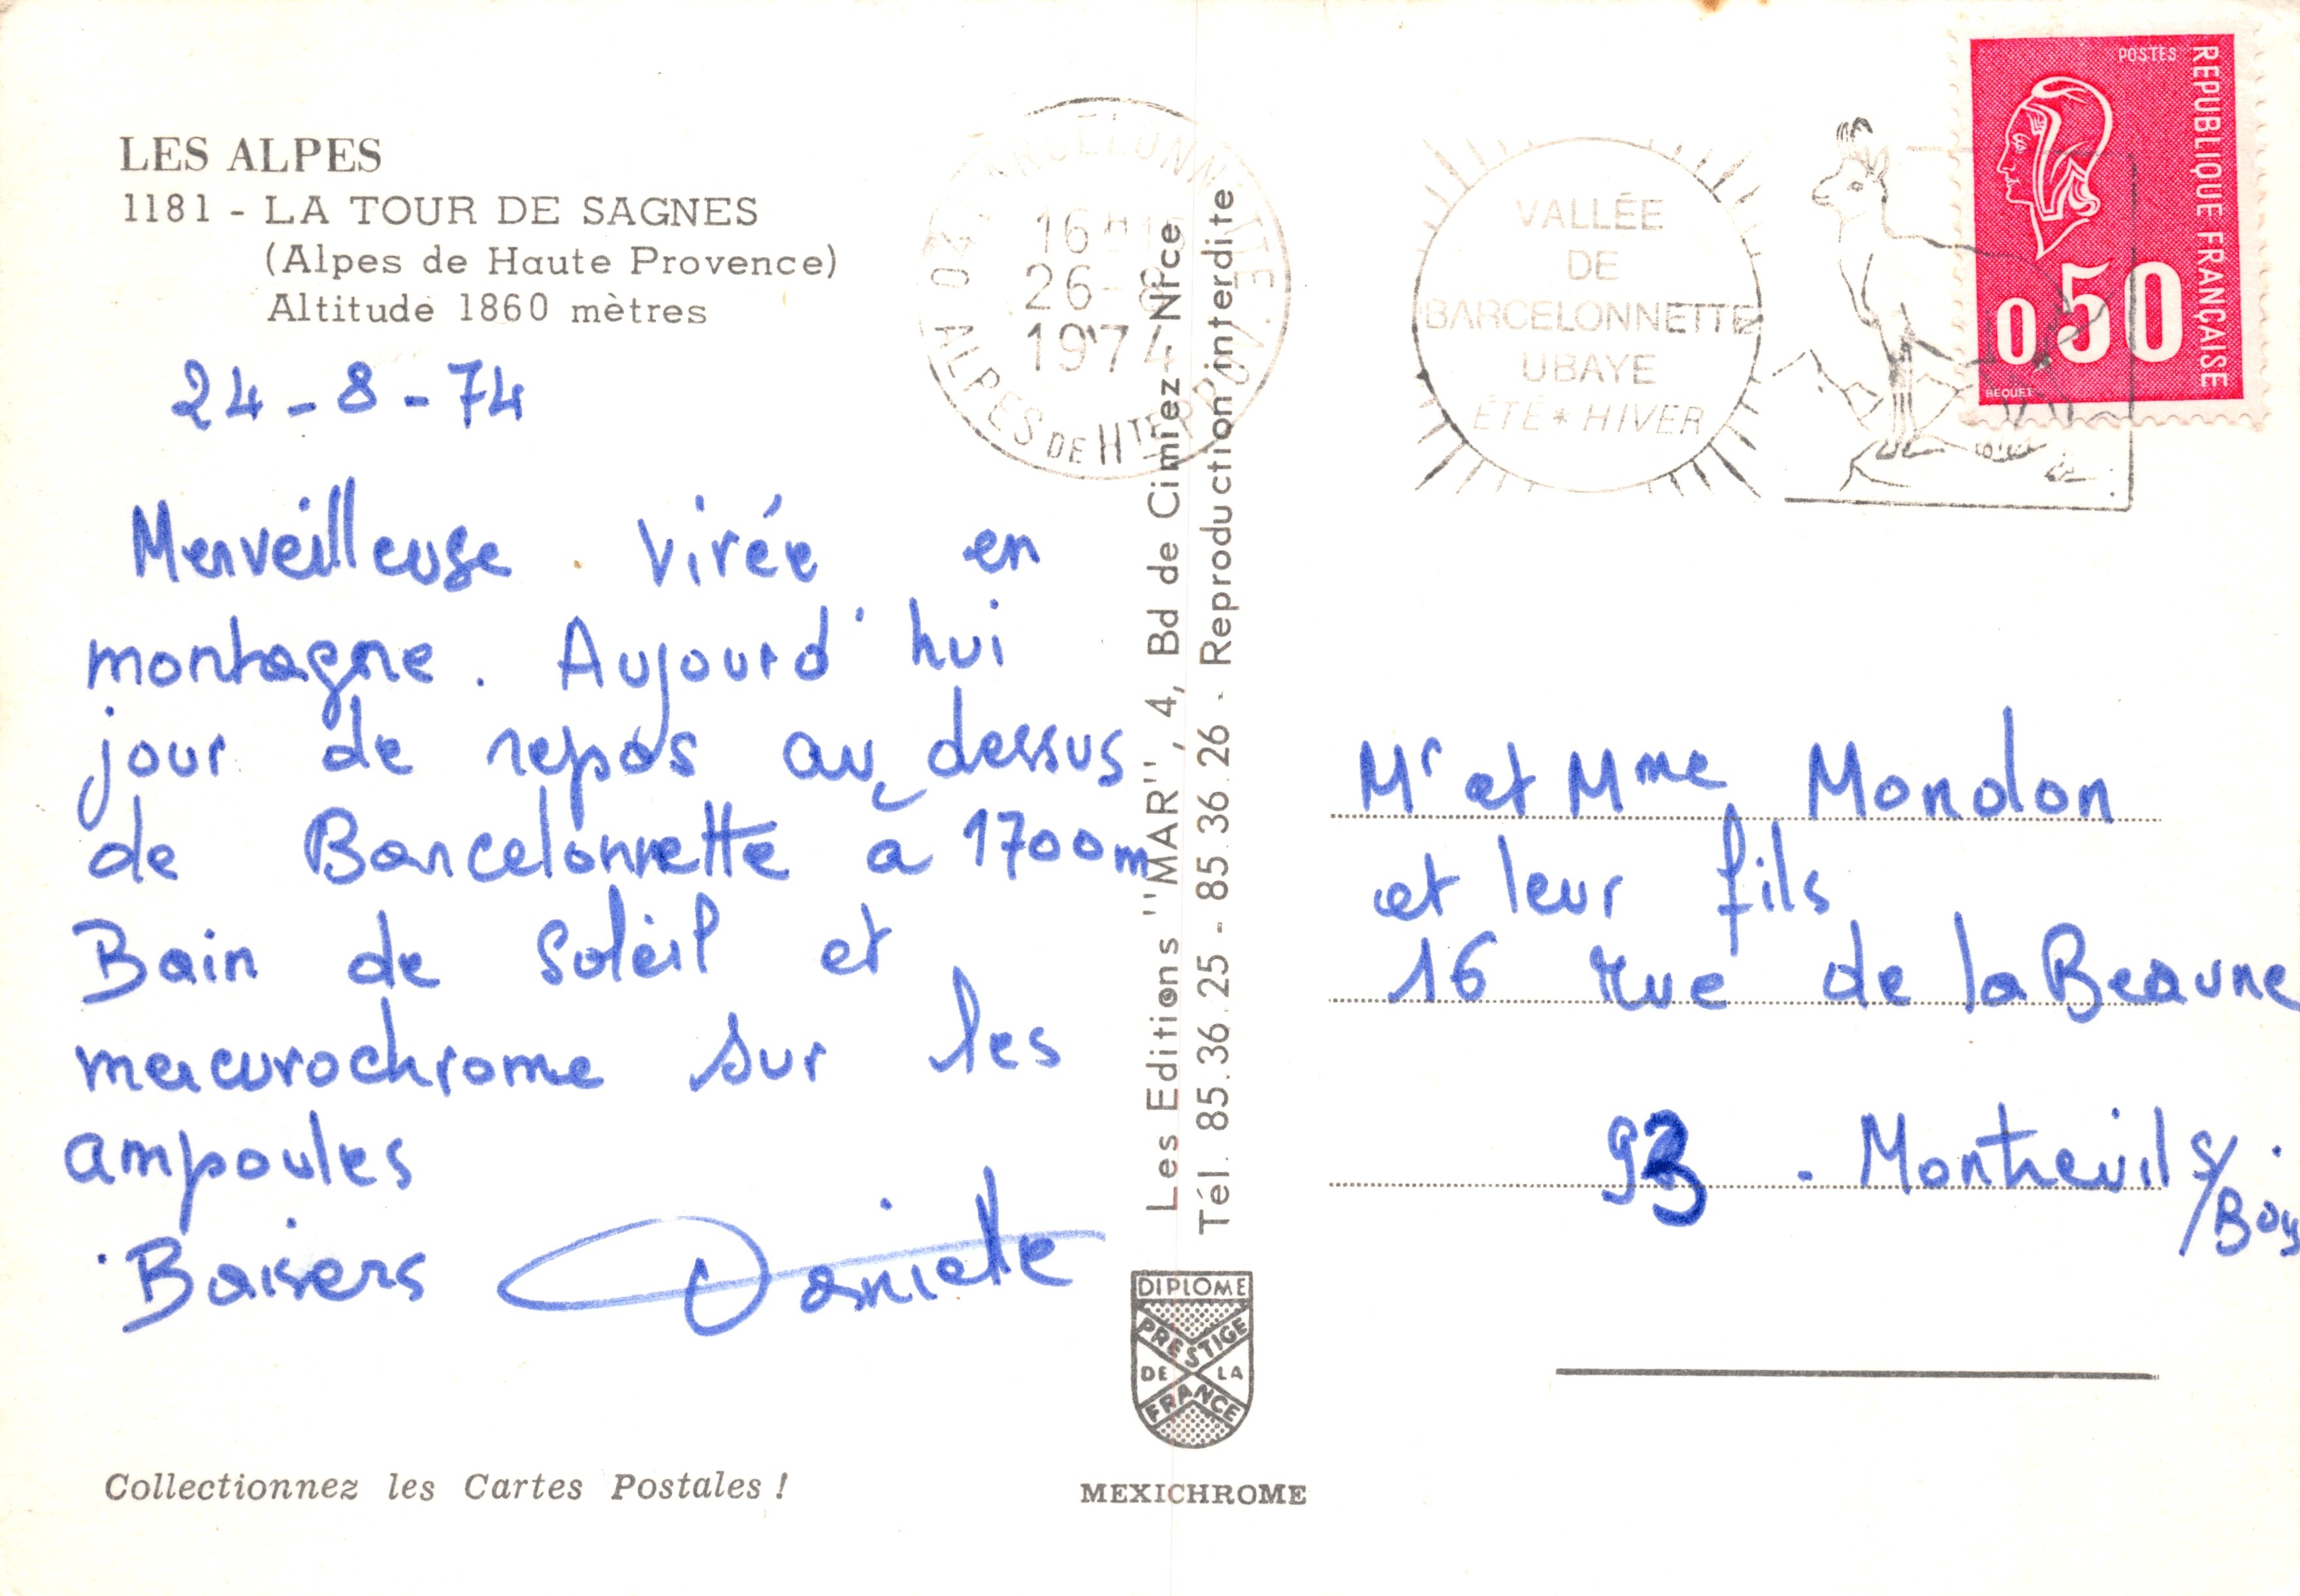 LES ALPES
1181 - LA TOUR DE SAGNES
(Alpes de Haute Provence)
Altitude 1860 mètres
24-8-74
Merveilleuse virée en
montagne. Aujourd'hui
jour de repos au dessus
de Barcelonnette à 1700m
Bain de soleil et
mercurochrome sur les
ampoules
Baisers Danielle
Collectionnez les Cartes Postales !
Les Editions "MAR", 4, Bd de Cimiez - Nice
Tél. 85.36.25 - 85.36.26 - Reproduction interdite
DIPLOME
PRESTIGE
DE LA
FRANCE
MEXICHROME
04 BARCELONNETTE
16H15
26-8
1974
ALPES DE HTE PROVENCE
VALLÉE
DE
BARCELONNETTE
UBAYE
ÉTÉ * HIVER
POSTES
REPUBLIQUE FRANÇAISE
0,50
BEQUET
Mr et Mme Mondon
et leur fils
16 rue de la Beaune
93 - Montreuil s/
Bois